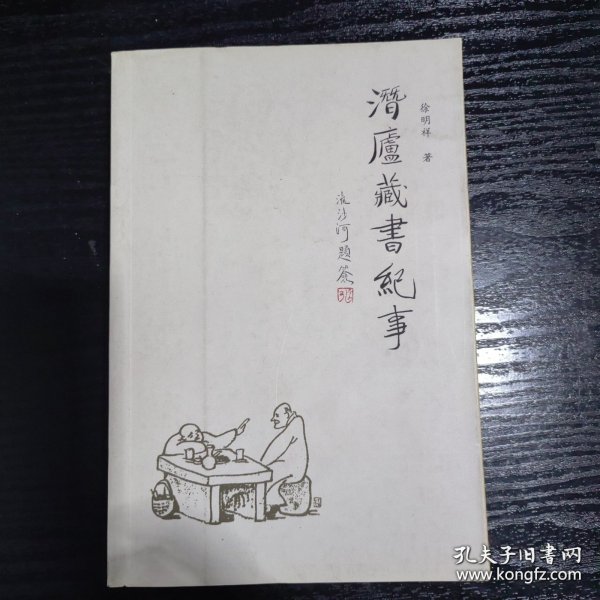 徐明祥 著
潛廬藏書紀事
流沙河題簽
孔夫子旧书网
www.kongfz.com